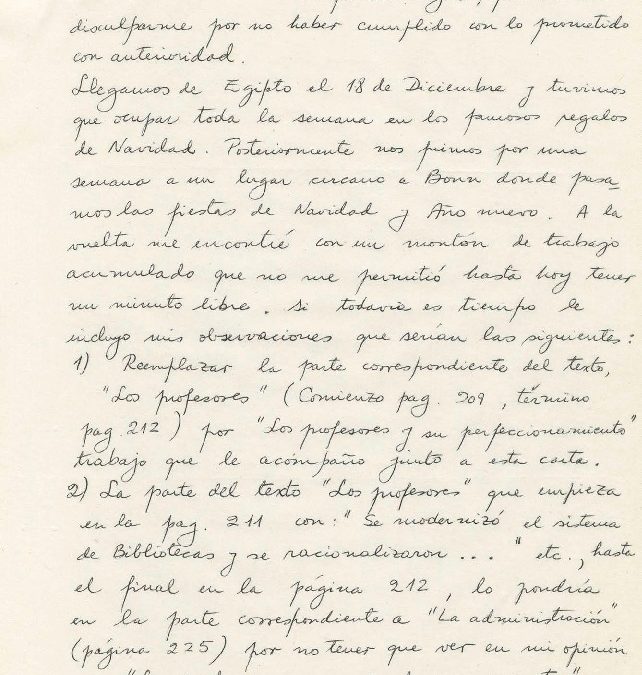 disculparme por no haber cumplido con lo prometido
con anterioridad.
Llegamos de Egipto el 18 de Diciembre y tuvimos
que ocupar toda la semana en los famosos regalos
de Navidad. Posteriormente nos fuimos por una
semana a un lugar cercano a Bonn donde pasa=
mos las fiestas de Navidad y Año nuevo. A la
vuelta me encontré con un montón de trabajo
acumulado que no me permitió hasta hoy tener
un minuto libre. Si todavia es tiempo le
incluyo mis observaciones que serían las siguientes:
1) Reemplazar la parte correspondiente del texto,
"Los profesores" (Comienzo pag. 209, término
pag. 212) por "Los profesores y su perfeccionamiento"
trabajo que le acompaño junto a esta carta.
2) La parte del texto "Los profesores" que empieza
en la pag. 211 con: "Se modernizó el sistema
de Bibliotecas y se racionalizaron ... " etc., hasta
el final en la página 212, lo pondría
en la parte correspondiente a "La administración"
(página 225) por no tener que ver en mi opinión